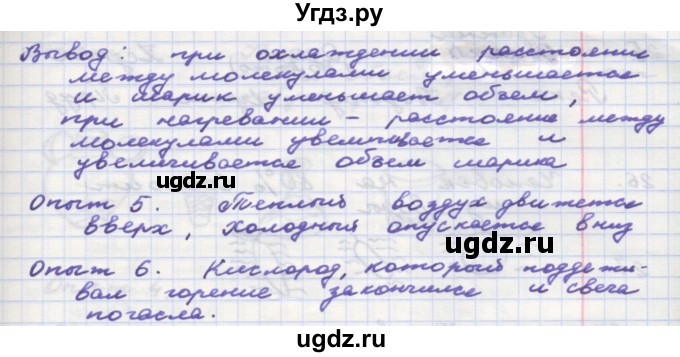 Угдз.ру
Вывод: при охлаждении расстояние
между молекулами уменьшается
и шарик уменьшает объем,
при нагревании – расстояние между
молекулами увеличивается и
увеличивается объем шарика
угдз.ру
Опыт 5. Теплый воздух движется
вверх, холодный опускается вниз
угдз.ру
Опыт 6. Кислород, который поддежи-
вал горение закончился и свеча
погасла.
угдз.ру
угдз.ру